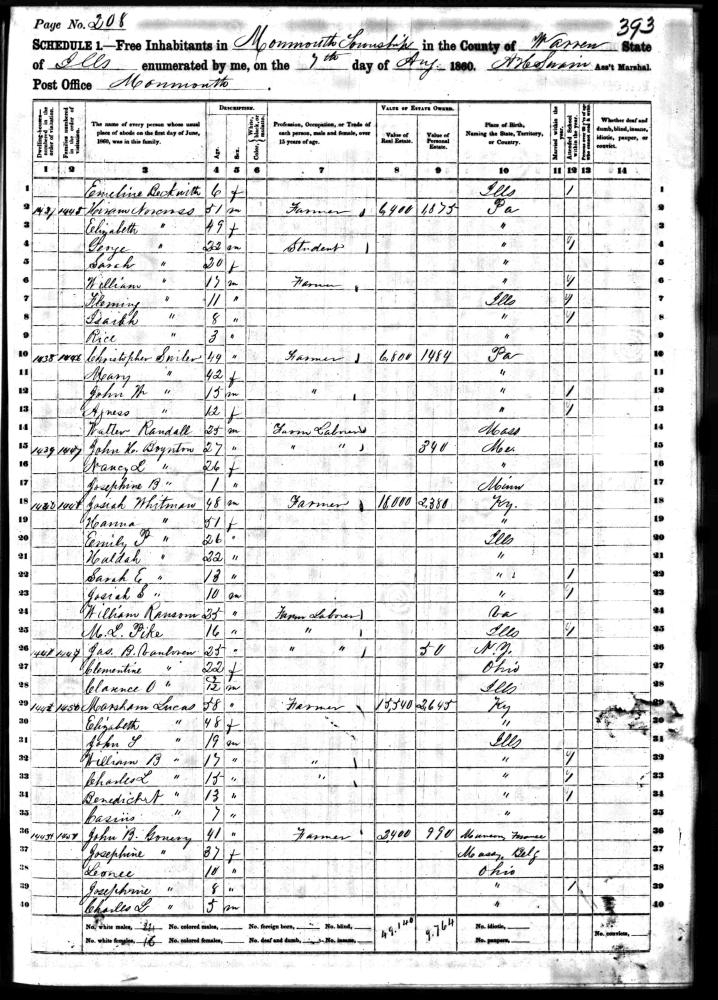 Page No. 208
393
SCHEDULE 1.—Free Inhabitants in Monmouth Township in the County of Warren State
of Ills enumerated by me, on the 7th day of Aug. 1860. Ass't Marshal.
Post Office Monmouth.
DESCRIPTION. VALUE OF ESTATE OWNED.
Dwelling-houses—numbered in the order of visitation.
Families numbered in the order of visitation.
The name of every person whose usual place of abode on the first day of June, 1860, was in this family.
Age.
Sex.
Color, White, black, or mulatto.
Profession, Occupation, or Trade of each person, male and female, over 15 years of age.
Value of Real Estate.
Value of Personal Estate.
Place of Birth, Naming the State, Territory, or Country.
Married within the year.
Attended School within the year.
Whether deaf and dumb, blind, insane, idiotic, pauper, or convict.
1 2 3 4 5 6 7 8 9 10 11 12 13 14
1 Emeline Beckwith 6 f Ills 1 1
2 Hiram Norcross 51 m Farmer 6,400 1,875 Pa 2
3 Elizabeth " 49 f " 3
4 George " 22 m Student " 1 4
5 Sarah " 20 f " 5
6 William " 17 m Farmer " 1 6
7 Fleming " 11 " Ills 1 7
8 Isaiah " 8 " " 1 8
9 Rice " 3 " " 9
10 Christopher 49 " Farmer 6,800 1484 Pa 10
11 Mary " 42 f " 11
12 John W " 15 m " " 1 12
13 Agness " 12 f " 1 13
14 Walter Randall 25 m Farm Laborer Mass 14
15 1439 1447 John Boynton 27 " " " 340 Me. 15
16 Nancy L " 26 f " 16
17 Josephine B " 1 " Minn 17
18 Josiah Whitman 48 m Farmer 18,000 2,380 Ky. 18
19 Hanna " 51 f " 19
20 Emily P " 26 " Ills 20
21 Huldah " 22 " " 21
22 Sarah E " 13 " " 1 22
23 Josiah S " 10 m " 1 23
24 William Ransom 25 " Farm Laborer Va 24
25 M. L. Pike 16 " " Ills 1 25
26 Jas. B. 25 " " " 50 N.Y. 26
27 Clementine " 22 f Ohio 27
28 Clarence O " m Ills 28
29 1442 1450 Marsham Lucas 58 " Farmer 15,540 2,645 Ky 29
30 Elizabeth " 48 f " 30
31 John S " 19 m Ills 31
32 William B " 17 " " " 1 32
33 Charles L " 15 " " " 1 33
34 Benedict A " 13 " " 1 34
35 Casius " 7 " " 35
36 John B. 41 " Farmer 2400 990 36
37 Josephine " 37 f Belg 37
38 Leonee " 10 " Ohio 38
39 Josephine " 8 " " 1 39
40 Charles L " 5 m " 40
No. white males, 24 No. colored males, No. foreign born, No. blind, 49,140 9,764 No. idiotic, No. convicts,
No. white females, 16 No. colored females, No. deaf and dumb, No. insane, No. paupers,